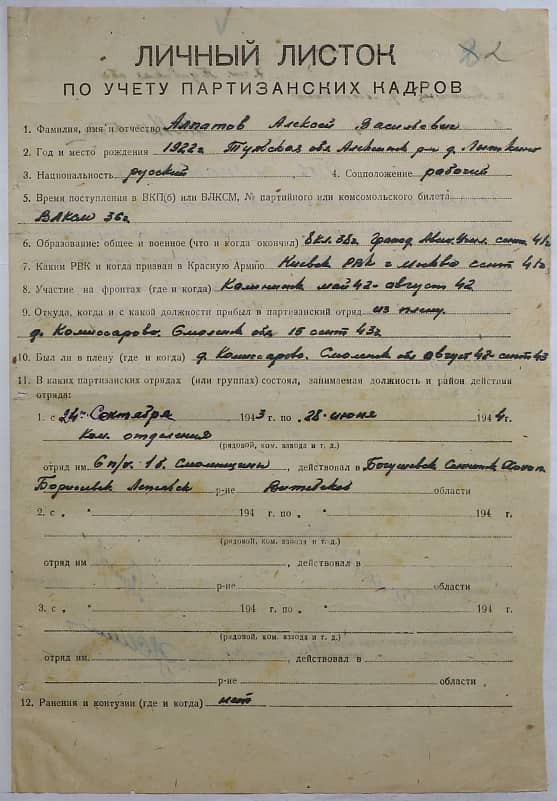 2
ЛИЧНЫЙ ЛИСТОК
ПО УЧЕТУ ПАРТИЗАНСКИХ КАДРОВ
1. Фамилия, имя и отчество Алпатов Алексей Васильевич
2. Год и место рождения 1922г Тульская обл Алексинск р-н д.
3. Национальность русский 4. Соцположение рабочий
5. Время поступления в ВКП(б) или ВЛКСМ, № партийного или комсомольского билета
ВЛКСМ 36г
6. Образование: общее и военное (что и когда окончил) 8 кл. 38г. сент. 41г
7. Каким РВК и когда призван в Красную Армию Киевск РВК г Москва сент 41г
8. Участие на фронтах (где и когда) Калининск май 42 - август 42
9. Откуда, когда и с какой должности прибыл в партизанский отряд из плену
д. Комиссарово. Смоленск обл 15 сент 43г
10. Был ли в плену (где и когда) д. Комиссарово. Смоленск обл август 42 - сент 43
11. В каких партизанских отрядах (или группах) состоял, занимаемая должность и район действия
отряда:
1. с 24" Сентября 1943 г. по 28 июня 1944 г.
Ком. отделения
(рядовой, ком. взвода и т. д.)
отряд им. 6 п/к. 1 б. Смоленщины, действовал в Богушевск Сенненск Холоп.
Борисовск Лепельск р-не Витебской области
2. с " 194 г. по " 194 г.
(рядовой, ком. взвода и т. д.)
отряд им , действовал в
р-не области
3. с " 194 г. по " 194 г.
(рядовой, ком. взвода и т. д.)
отряд им. , действовал в
р-не области
12. Ранения и контузии (где и когда) нет